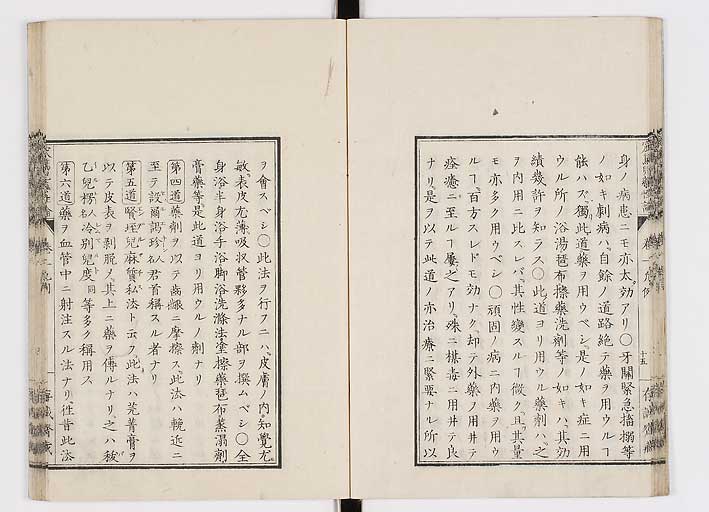 身ノ病患ニモ亦太効アリ〇牙關緊急搐搦等
ノ如キ劇病ハ自餘ノ道路絶テ藥ヲ用ウルヿ
能ハズ獨此道藥ヲ用ウベシ是ノ如キ症ニ用
ウル所ノ浴湯琶布擦藥洗劑等ノ如キハ其効
績幾許ヲ知ラス〇此道ヨリ用ウル藥劑ハ之
ヲ内用ニ比スレバ其性變スルヿ微ク且其量
モ亦多ク用ウベシ〇頑固ノ病ニ内藥ヲ用ウ
ルヿ百方スレドモ効ナク却テ外藥ヲ用ヰテ
痊癒ニ至ルヿ屢之アリ殊ニ楳毒ニ用ヰテ良
ナリ是ヲ以テ此道ノ亦治療ニ緊要ナル所以
十五
ヲ會スベシ〇此法ヲ行フニハ皮膚ノ内知覺尤
敏表皮尤薄吸収管夥多ナル部ヲ撰ムベシ〇全
身浴半身浴手浴脚浴洗滌法塗擦藥琶布蒸溻劑
膏藥等是此道ヨリ用ウルノ劑ナリ
第四道藥劑ヲ以テ齒齦ニ摩擦ス此法ハ輓近ニ
至テ設爾謁珍人名君首稱スル者ナリ
第五道賢垤兒麻質私法ト云フ此法ハ芫菁膏ヲ
以テ皮表ヲ剥脱メ其上ニ藥ヲ傳ルナリ之ハ秡
乙兒楞人名冷別兒度同等多ク稱用ス
第六道藥ヲ血管中ニ射注スル法ナリ徃昔此法